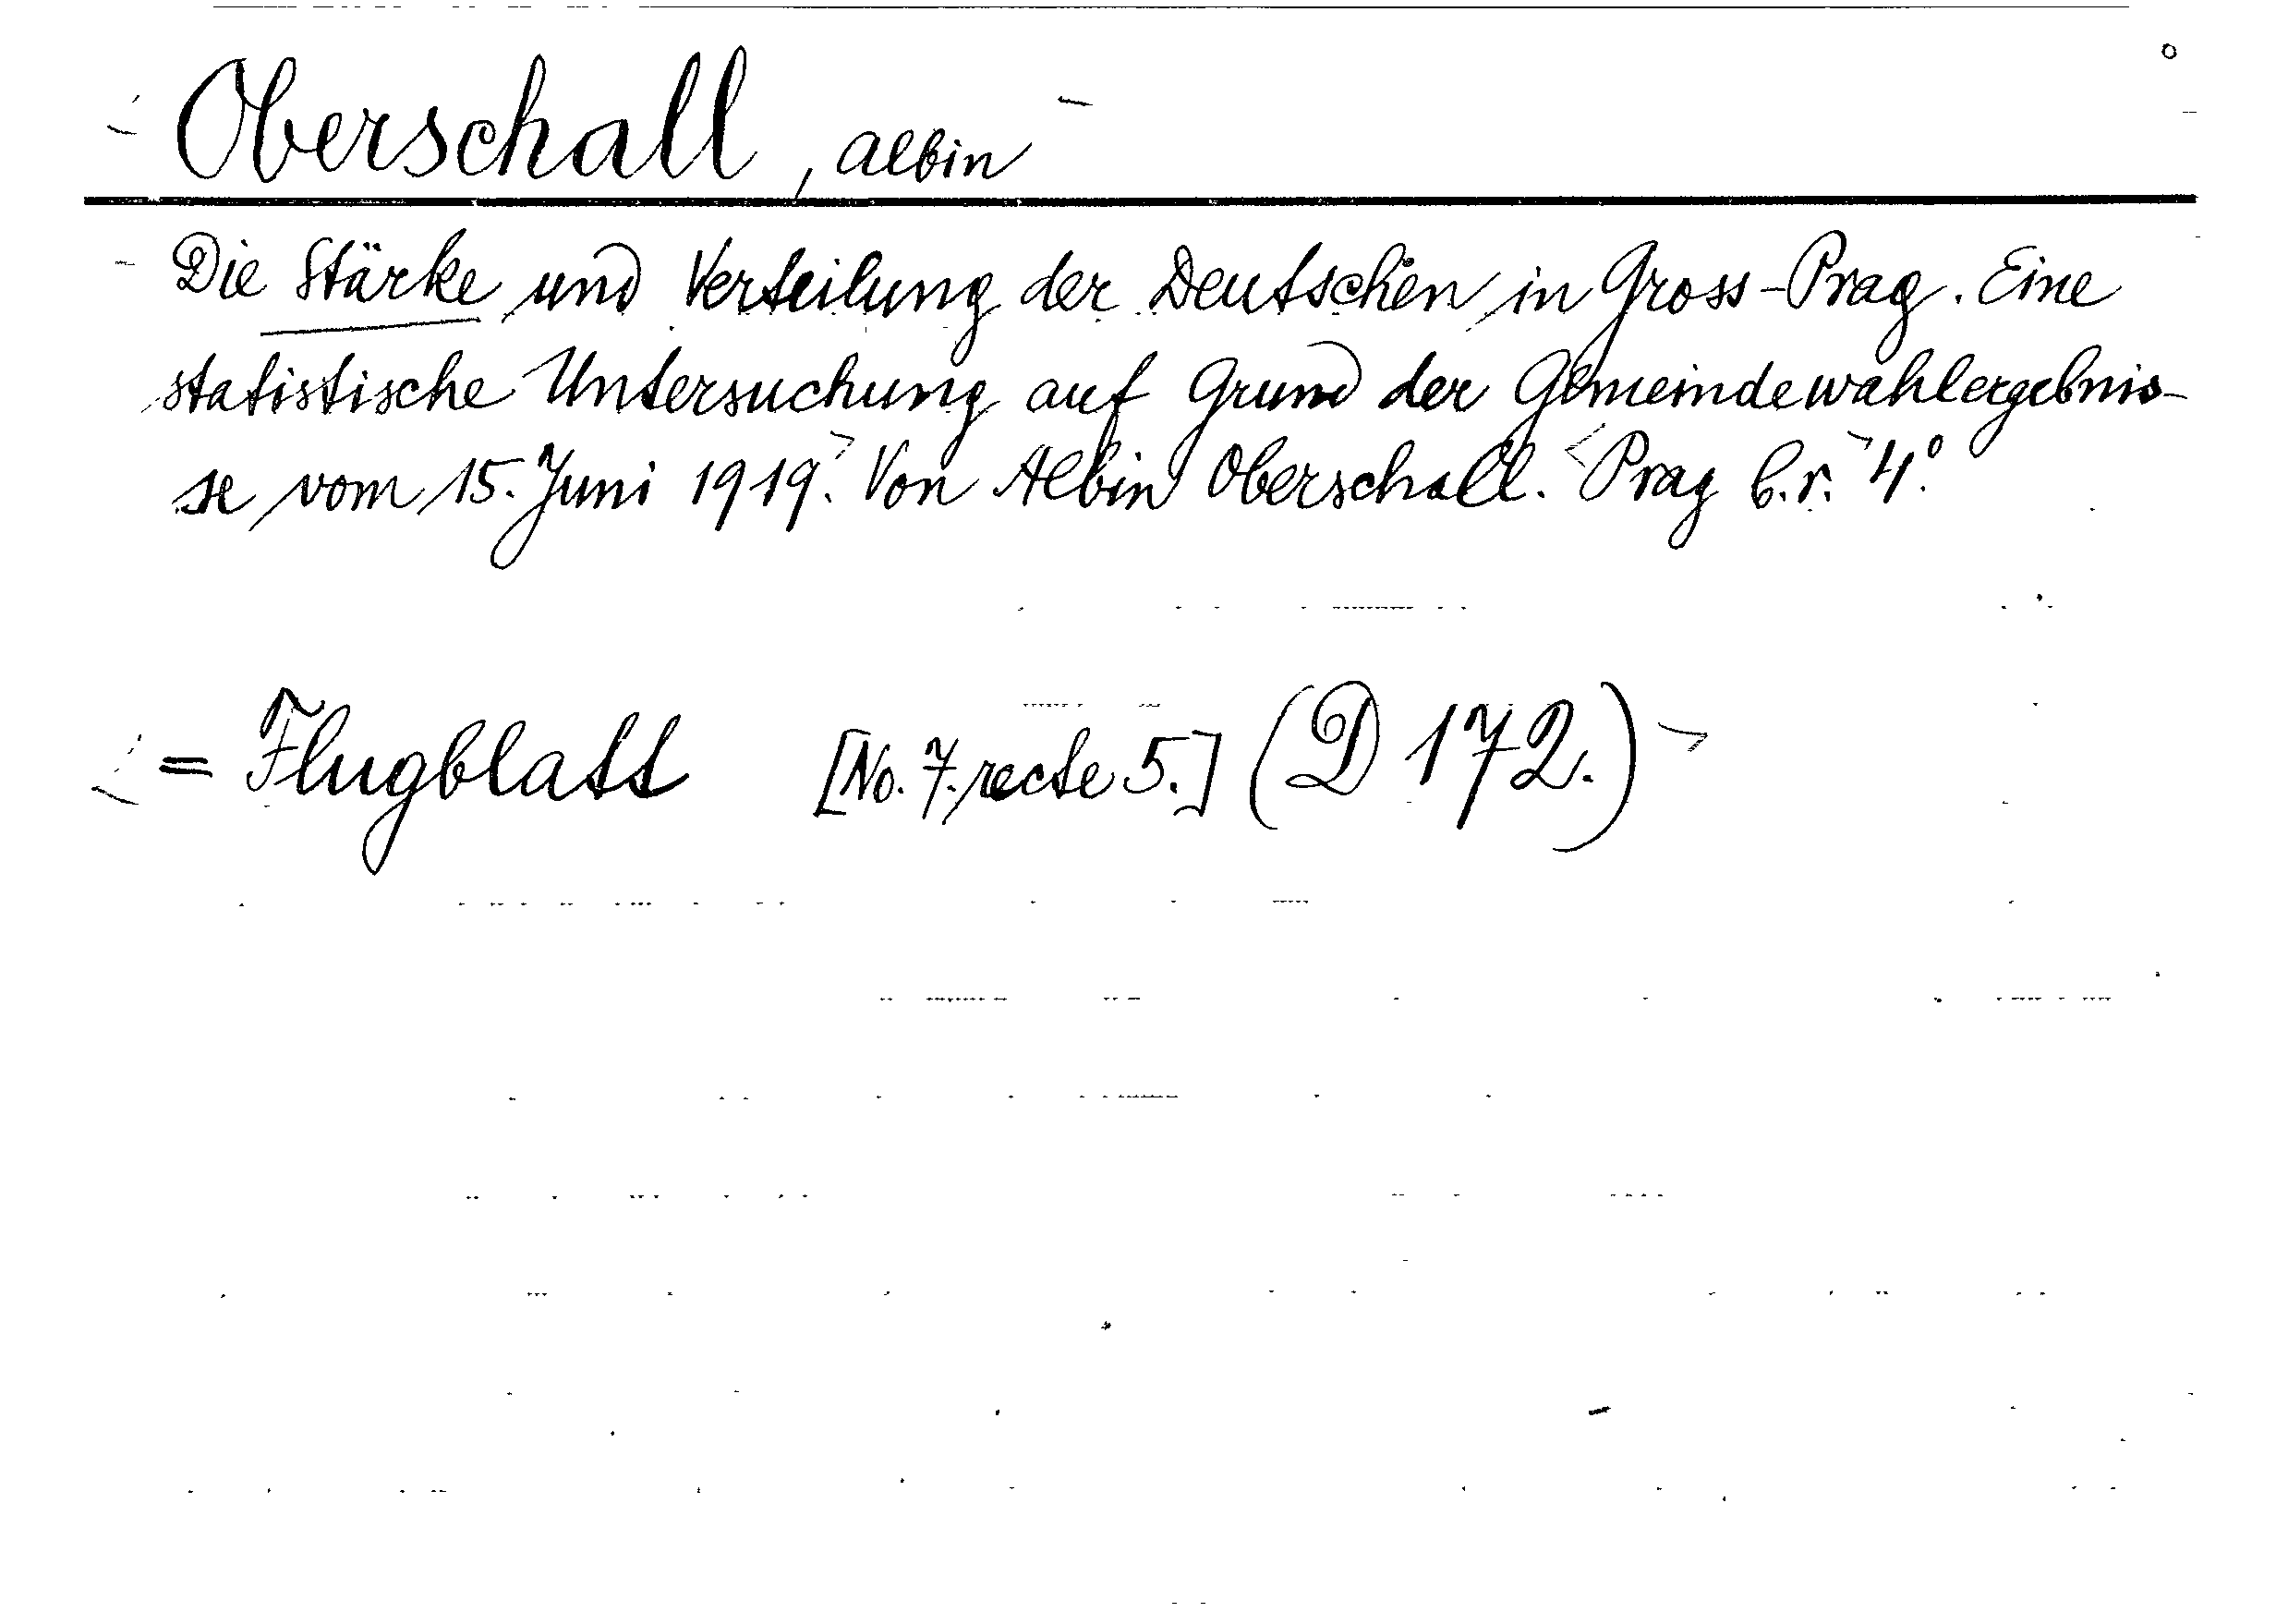 Oberschall, Albin
Die Stärke und Verteilung der Deutschen in Gross-Prag. Eine
statistische Untersuchung auf Grund der Gemeindewahlergebnis-
se vom 15. Juni 1919. Von Albin Oberschall. Prag b.r. 4°.
= Flugblatt [No. 7. recte 5.] (D 172.)